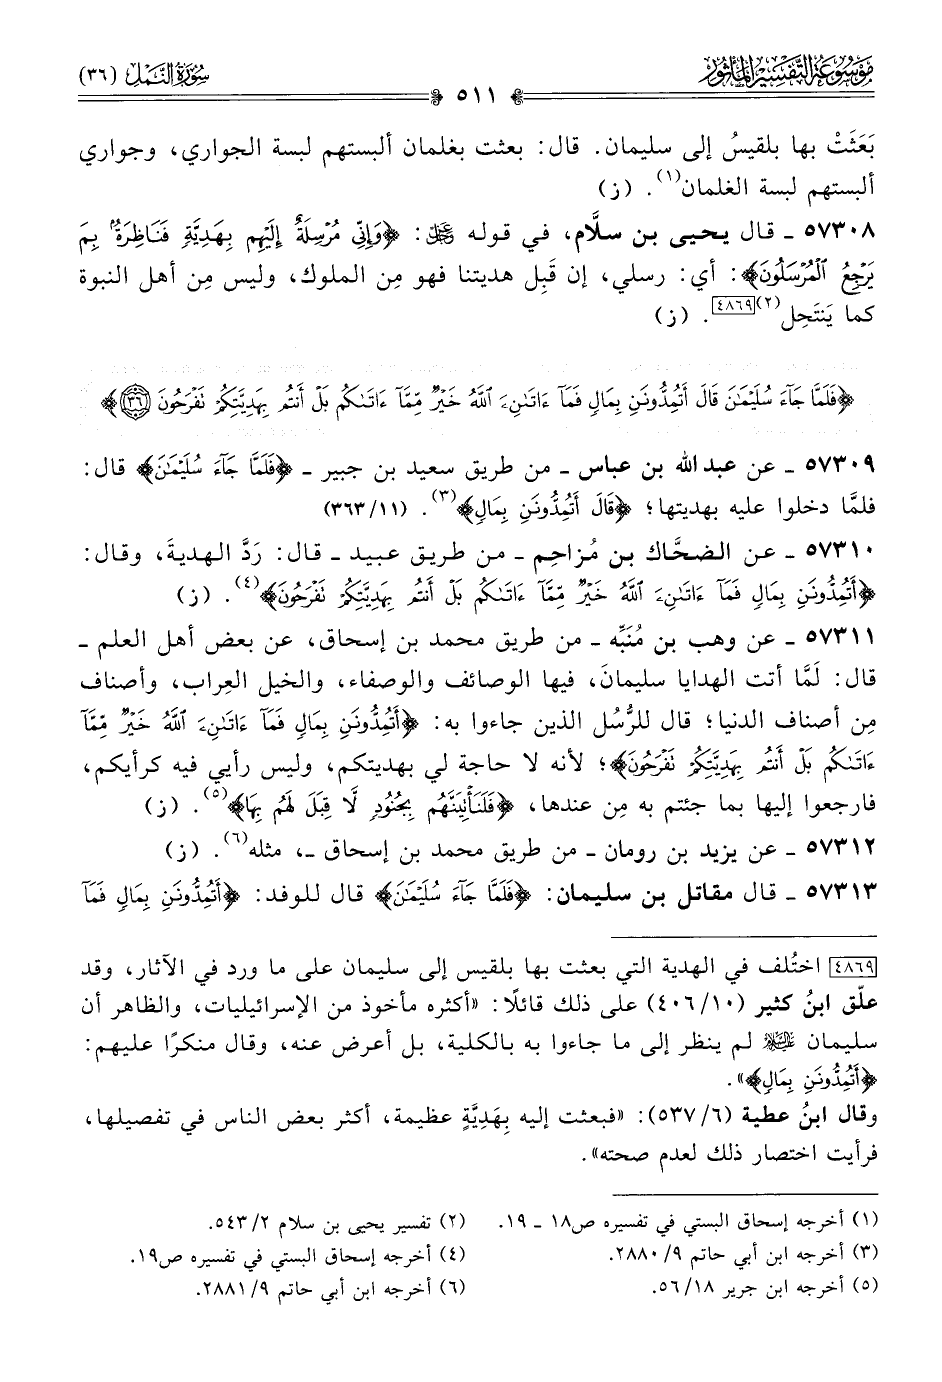 موسوعة التفسير المأثور
سورة النمل (٣٦)
٥١١
بَعَثَتْ بها بلقيسُ إلى سليمان. قال: بعثت بغلمان ألبستهم لبسة الجواري، وجواري
ألبستهم لبسة الغلمان(١). (ز)
٥٧٣٠٨ ـ قال يحيى بن سلَّام، في قوله ﷻ: ﴿وَإِنِّي مُرْسِلَةٌ إِلَيْهِم بِهَدِيَّةٍ فَنَاظِرَةٌ بِمَ
يَرْجِعُ ٱلْمُرْسَلُونَ﴾: أي: رسلي، إن قَبِل هديتنا فهو مِن الملوك، وليس مِن أهل النبوة
كما يَنتَحِل(٢)[٤٨٦٩]. (ز)
﴿فَلَمَّا جَآءَ سُلَيْمَٰنَ قَالَ أَتُمِدُّونَنِ بِمَالٍ فَمَآ ءَاتَىٰنِۦَ ٱللَّهُ خَيْرٌ مِّمَّآ ءَاتَىٰكُم بَلْ أَنتُم بِهَدِيَّتِكُمْ تَفْرَحُونَ ٣٦﴾
٥٧٣٠٩ ـ عن عبد الله بن عباس ـ من طريق سعيد بن جبير ـ ﴿فَلَمَّا جَآءَ سُلَيْمَٰنَ﴾ قال:
فلمَّا دخلوا عليه بهديتها؛ ﴿قَالَ أَتُمِدُّونَنِ بِمَالٍ﴾(٣). (١١/٣٦٣)
٥٧٣١٠ ـ عن الضحَّاك بن مُزاحِم ـ من طريق عبيد ـ قال: رَدَّ الهديةَ، وقال:
﴿أَتُمِدُّونَنِ بِمَالٍ فَمَآ ءَاتَىٰنِۦَ ٱللَّهُ خَيْرٌ مِّمَّآ ءَاتَىٰكُم بَلْ أَنتُم بِهَدِيَّتِكُمْ تَفْرَحُونَ﴾(٤). (ز)
٥٧٣١١ ـ عن وهب بن مُنَبِّه ـ من طريق محمد بن إسحاق، عن بعض أهل العلم ـ
قال: لَمَّا أتت الهدايا سليمانَ، فيها الوصائف والوصفاء، والخيل العِراب، وأصناف
مِن أصناف الدنيا؛ قال للرُّسُل الذين جاءوا به: ﴿أَتُمِدُّونَنِ بِمَالٍ فَمَآ ءَاتَىٰنِۦَ ٱللَّهُ خَيْرٌ مِّمَّآ
ءَاتَىٰكُم بَلْ أَنتُم بِهَدِيَّتِكُمْ تَفْرَحُونَ﴾؛ لأنه لا حاجة لي بهديتكم، وليس رأيي فيه كرأيكم،
فارجعوا إليها بما جئتم به مِن عندها، ﴿فَلَنَأْتِيَنَّهُم بِجُنُودٍ لَّا قِبَلَ لَهُم بِهَا﴾(٥). (ز)
٥٧٣١٢ ـ عن يزيد بن رومان ـ من طريق محمد بن إسحاق ـ، مثله(٦). (ز)
٥٧٣١٣ ـ قال مقاتل بن سليمان: ﴿فَلَمَّا جَآءَ سُلَيْمَٰنَ﴾ قال للوفد: ﴿أَتُمِدُّونَنِ بِمَالٍ فَمَآ
[٤٨٦٩] اختُلف في الهدية التي بعثت بها بلقيس إلى سليمان على ما ورد في الآثار، وقد
علّق ابنُ كثير (١٠/٤٠٦) على ذلك قائلًا: «أكثره مأخوذ من الإسرائيليات، والظاهر أن
سليمان ﵇ لم ينظر إلى ما جاءوا به بالكلية، بل أعرض عنه، وقال منكرًا عليهم:
﴿أَتُمِدُّونَنِ بِمَالٍ﴾».
وقال ابنُ عطية (٦/٥٣٧): «فبعثت إليه بِهَدِيَّةٍ عظيمة، أكثر بعض الناس في تفصيلها،
فرأيت اختصار ذلك لعدم صحته».
(١) أخرجه إسحاق البستي في تفسيره ص١٨ ـ ١٩.
(٢) تفسير يحيى بن سلام ٢/٥٤٣.
(٣) أخرجه ابن أبي حاتم ٩/٢٨٨٠.
(٤) أخرجه إسحاق البستي في تفسيره ص١٩.
(٥) أخرجه ابن جرير ١٨/٥٦.
(٦) أخرجه ابن أبي حاتم ٩/٢٨٨١.